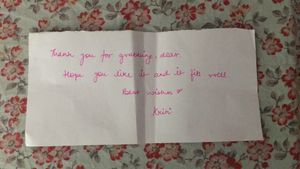 Thank you for grading, dear.
Hope you like it and it fits well
Best wishes ♥